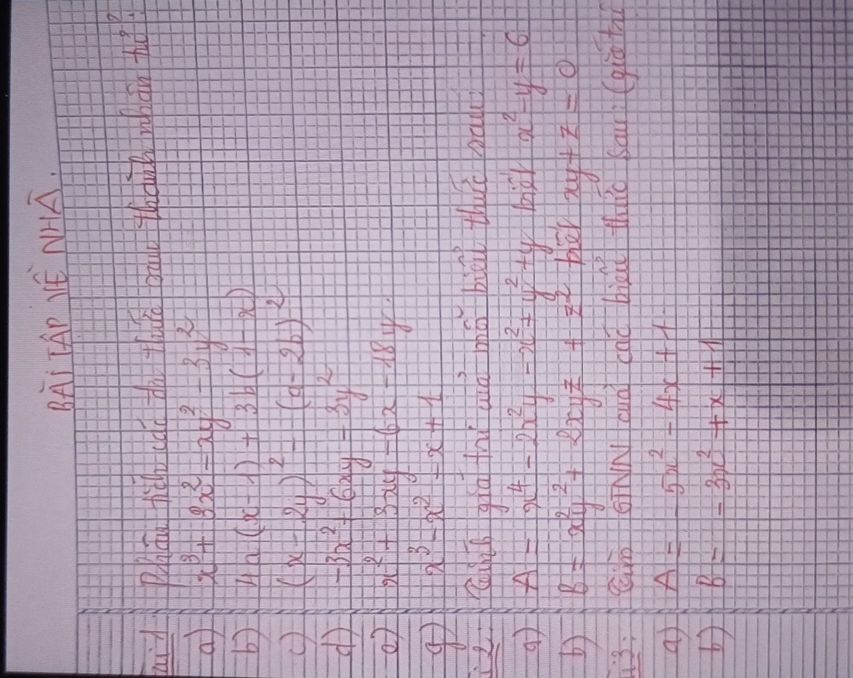 BÀI TẬP VỀ NHÀ.
Phân tích các đa thức sau thành nhân tử?
a) x³ + 3x² - xy² - 3y²
b) 4a(x - 1) + 3b(1 - x)
c) (x - 2y)² - (a - 2b)²
d) -3x² + 6xy - 3y²
e) x² + 3xy - 6x - 18y.
g) x³ - x² - x + 1
Tính giá trị của mỗi biểu thức sau:
a) A = x⁴ - 2x²y - x² + y² + y biết x² - y = 6
b) B = x²y² + 2xyz + z² biết xy + z = 0
Tìm GTNN của các biểu thức sau: (giá trị
a) A = -5x² - 4x + 1
b) B = -3x² + x + 1